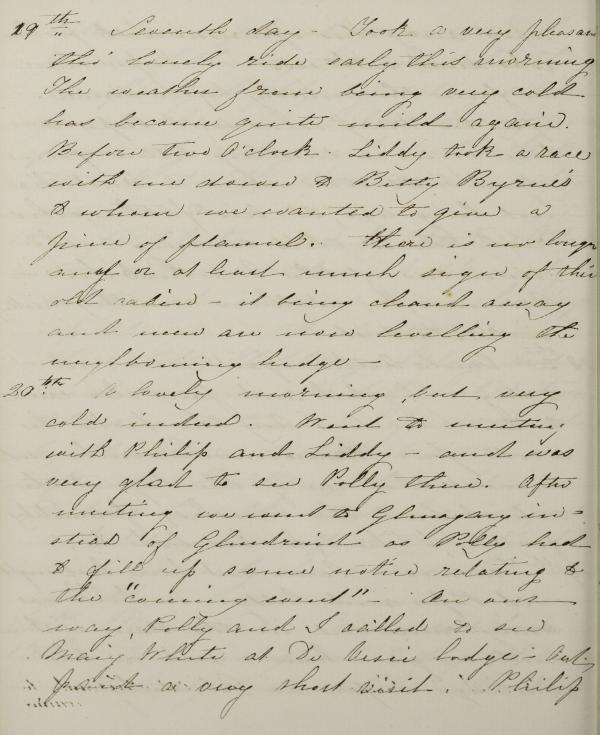 29th Seventh day - Took a very pleasant
this lonely ride early this morning
The weather from being very cold
has become quite mild again.
Before two O'clock. Liddy took a race
with me down to Betty Byrne's
to whom we wanted to give a
piece of flannel. There is no longer
any or at least much sign of this
old cabin - it being cleard away
and men are now levelling the
neighbouring hedge -
30th A lovely morning, but very
cold indeed. Went to meeting
with Philip and Liddy - and was
very glad to see Polly there. After
meeting we went to Glenagary in=
stead of Glendruid as Polly had
to fill up some notice relating to
the "coming event" - On our
way, Polly and I called to see
Mary White at De Vesci lodge - but
paid a very short visit. Philip